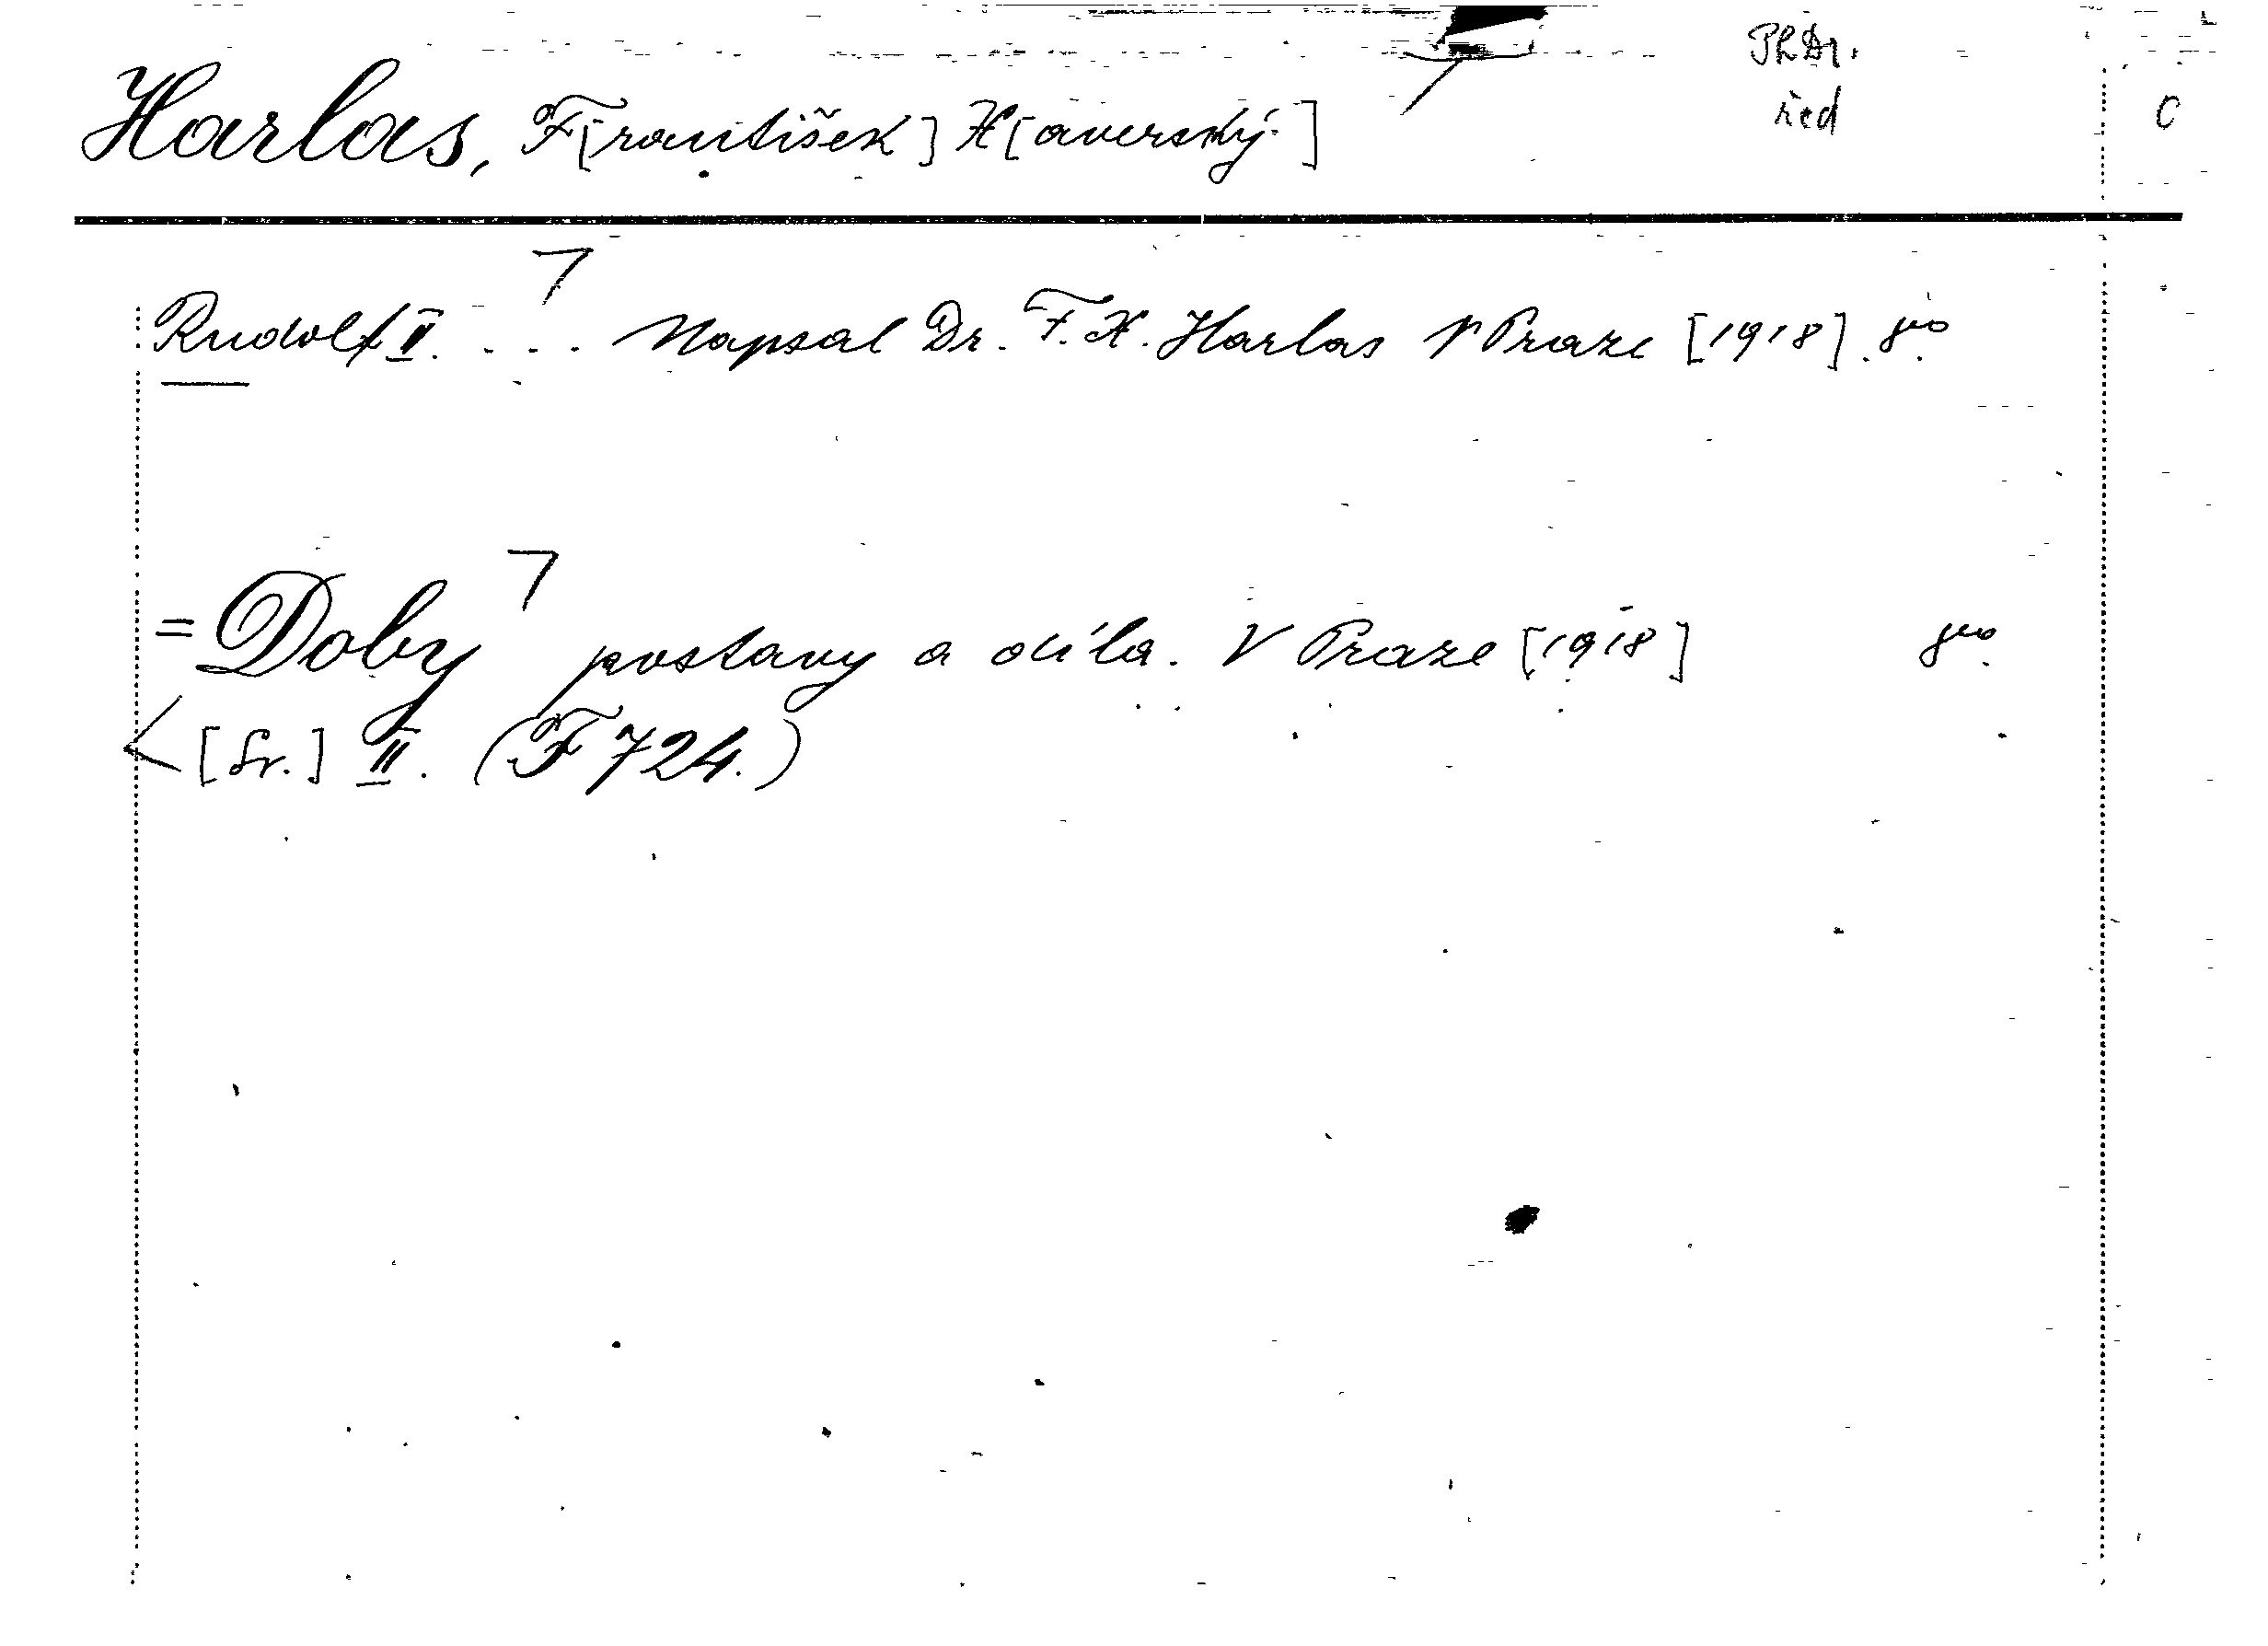 PhDr.
Harlas, F[rantišek] X[averský] řed C
Rudolf II. . . . Napsal Dr. F. X. Harlas V Praze [1918]. 8vo.
= Doby postavy a díla. V Praze [1918] 8vo.
[Sv.] II. (F 724.)